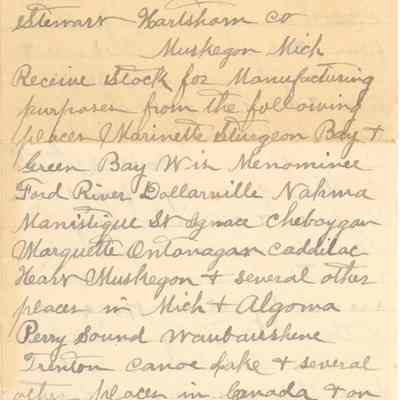 Stewart Hartshorn Co
Muskegon Mich
Receive Stock for Manufacturing
purposes from the following
places Marinette Sturgeon Bay +
Green Bay Wis Menominee
Ford River Dollarville Nahma
Manistique St Ignace Cheboygan
Marquette Ontonagan Caddilac
Heart Muskegon + several other
places in Mich + Algoma
Perry Sound Waubaushene
Trenton Canoe Lake + several
other places in Canada + on